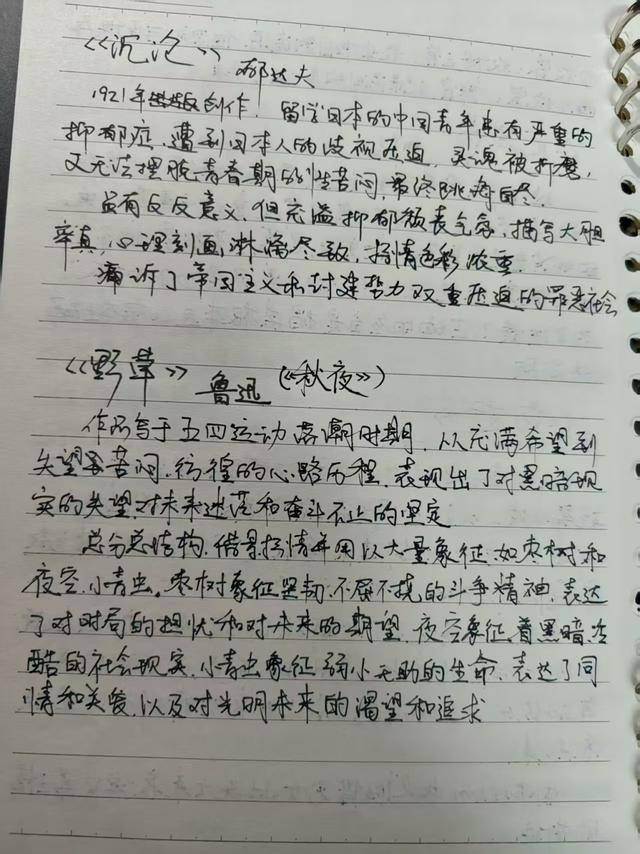 《沉沦》 郁达夫
1921年 创作. 留学日本的中国青年患有严重的
抑郁症, 遭到日本人的歧视压迫, 灵魂被折磨,
又无法摆脱青春期的性苦闷, 最终跳海自尽.
虽有反反意义, 但充溢抑郁颓丧气息, 描写大胆
率真, 心理刻画淋漓尽致, 抒情色彩浓重.
痛诉了帝国主义和封建势力双重压迫的罪恶社会
《野草》 鲁迅 (《秋夜》)
作品写于五四运动落潮时期, 从充满希望到
失望 苦闷, 彷徨的心路历程, 表现出了对黑暗现
实的失望, 对未来迷茫和奋斗不止的坚定
总分总结构, 借景抒情并用以大量象征, 如枣树和
夜空, 小青虫。枣树象征坚韧, 不屈不挠的斗争精神, 表达
了对时局的担忧和对未来的期望, 夜空象征着黑暗冷
酷的社会现实, 小青虫象征弱小无助的生命, 表达了同
情和关爱, 以及对光明未来的渴望和追求